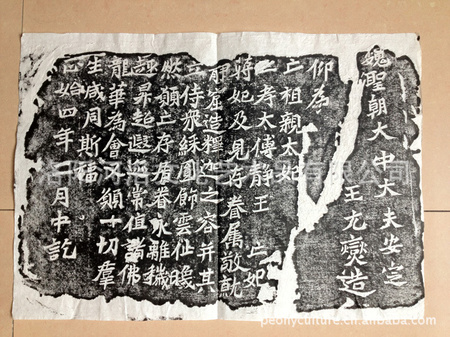 魏聖朝大中大夫安定
王元燮造
仰為
亡祖親太妃
亡考太傅静王亡妣
蔣妃及見存眷屬敬就
静窟造釋迦之容并其
二侍衆綵圓飾雲仙曖
然願亡存居眷永離穢
趣昇超遐迩常值諸佛
龍華為會又願一切羣
生咸同斯福
正始四年二月中訖
peonyculture.cn.alibaba.com